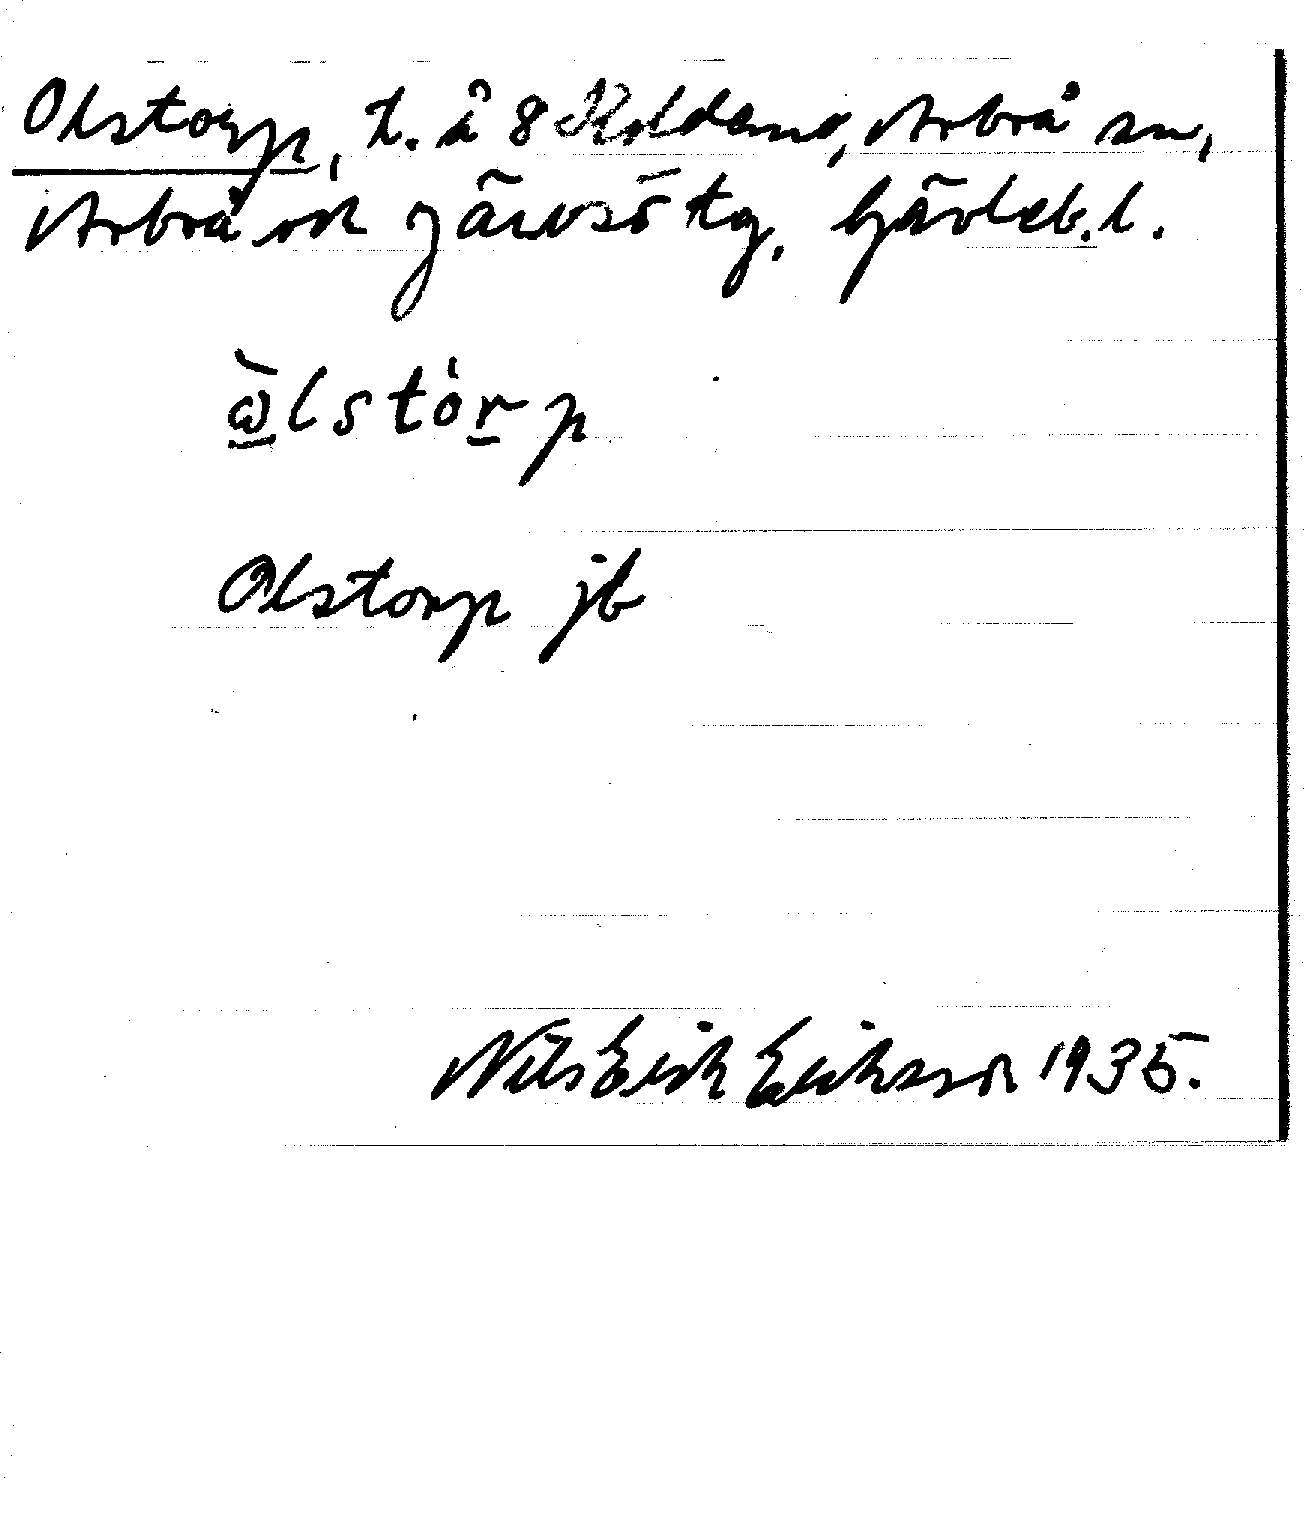 Olstorp, t. å 8 Koldemo, Arbrå sn,
Arbrå och Järvsö tg, Gävleb. l.
ὼ̱lstòṟp
Olstorp jb
Nils Erik Eriksson 1935.